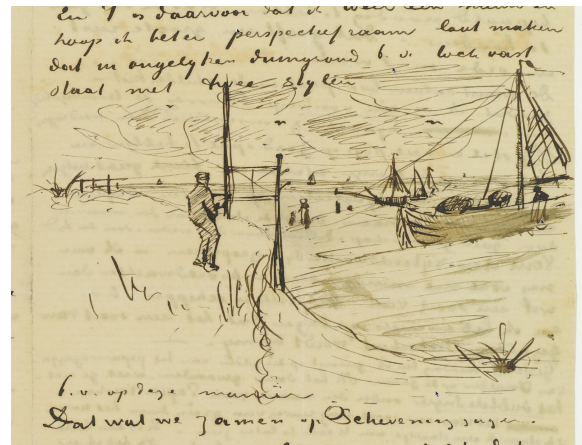 En 't is daarvoor dat ik weer een nieuw en
hoop ik beter perspectiefraam laat maken
dat in ongelyken duingrond b.v. toch vast
staat met twee stylen
b.v. op deze manier
Dat wat we zamen op Schevening zagen.